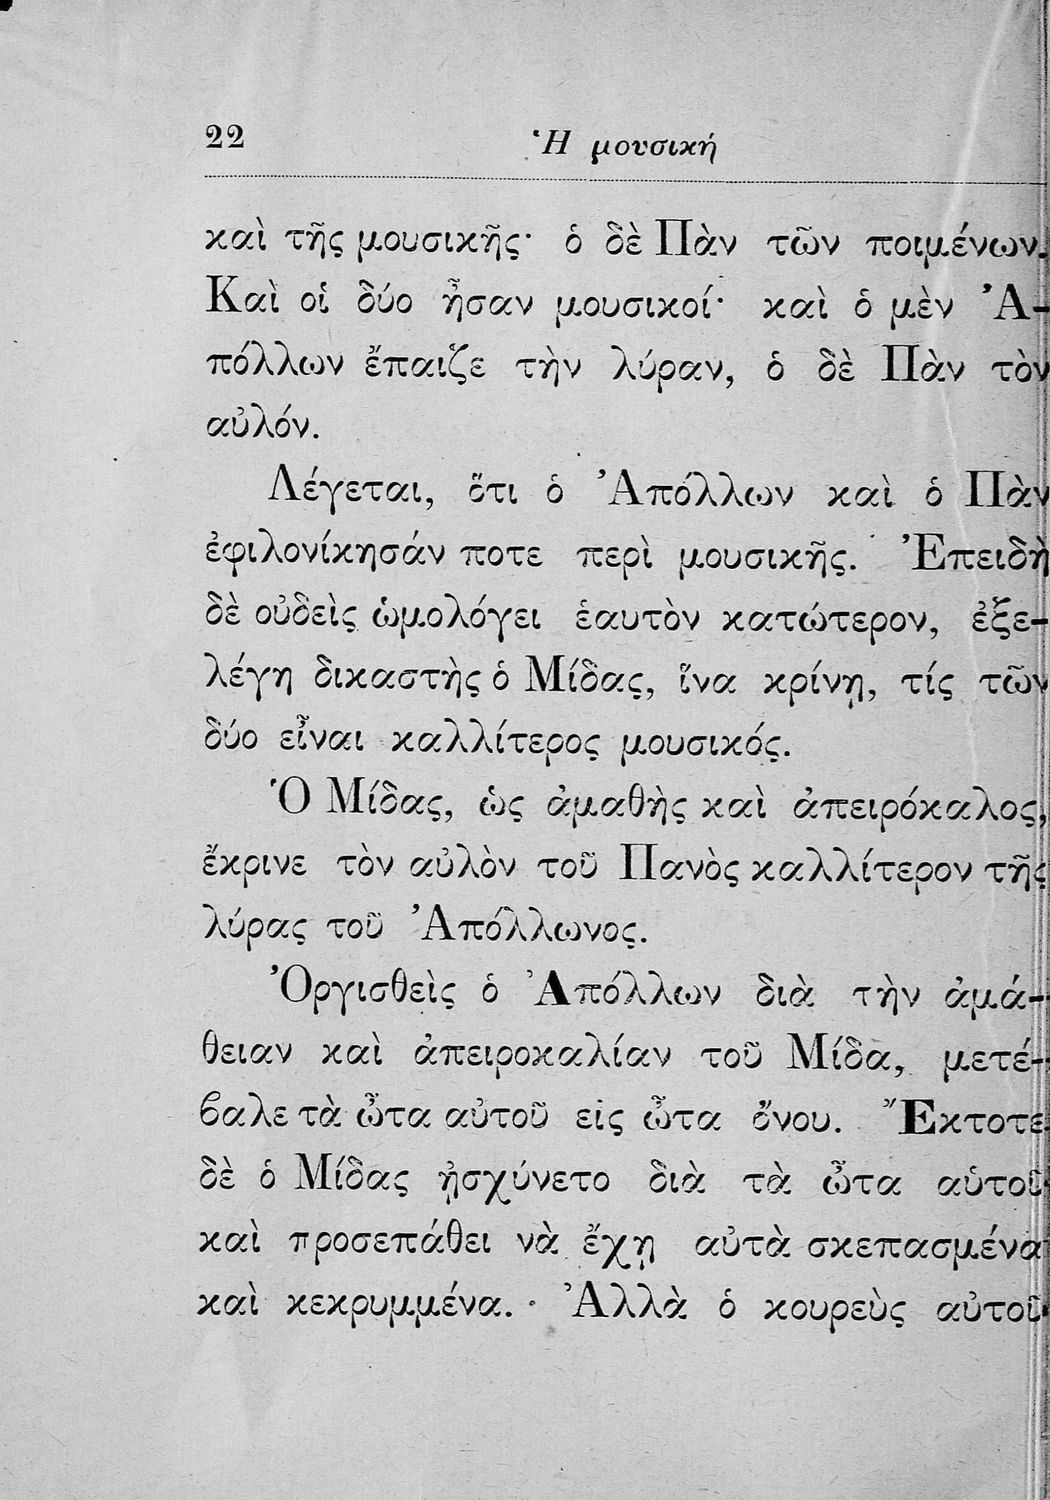 22 Ἡ μουσική
καὶ τῆς μουσικῆς· ὁ δὲ Πὰν τῶν ποιμένων.
Καὶ οἱ δύο ἦσαν μουσικοί· καὶ ὁ μὲν Ἀ-
πόλλων ἔπαιζε τὴν λύραν, ὁ δὲ Πὰν τὸν
αὐλόν.
Λέγεται, ὅτι ὁ Ἀπόλλων καὶ ὁ Πὰν
ἐφιλονίκησάν ποτε περὶ μουσικῆς. Ἐπειδὴ
δὲ οὐδεὶς ὡμολόγει ἑαυτὸν κατώτερον, ἐξε-
λέγη δικαστὴς ὁ Μίδας, ἵνα κρίνῃ, τίς τῶν
δύο εἶναι καλλίτερος μουσικός.
Ὁ Μίδας, ὡς ἀμαθὴς καὶ ἀπειρόκαλος,
ἔκρινε τὸν αὐλὸν τοῦ Πανὸς καλλίτερον τῆς
λύρας τοῦ Ἀπόλλωνος.
Ὀργισθεὶς ὁ Ἀπόλλων διὰ τὴν ἀμά-
θειαν καὶ ἀπειροκαλίαν τοῦ Μίδα, μετέ-
ϐαλε τὰ ὦτα αὐτοῦ εἰς ὦτα ὄνου. Ἔκτοτε
δὲ ὁ Μίδας ᾐσχύνετο διὰ τὰ ὦτα αὑτοῦ
καὶ προσεπάθει νὰ ἔχῃ αὐτὰ σκεπασμένα
καὶ κεκρυμμένα. Ἀλλὰ ὁ κουρεὺς αὐτοῦ